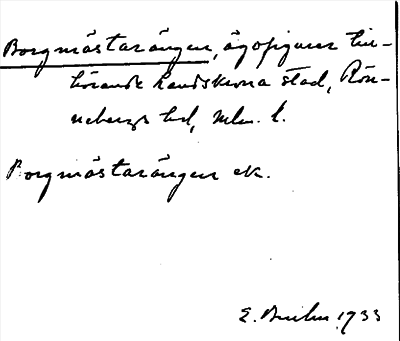 Borgmästarängen, ägofigurer till-
hörande Landskrona stad, Rön-
nebergs hd, Mlm. l.
Borgmästarängen ek.
E. 1933